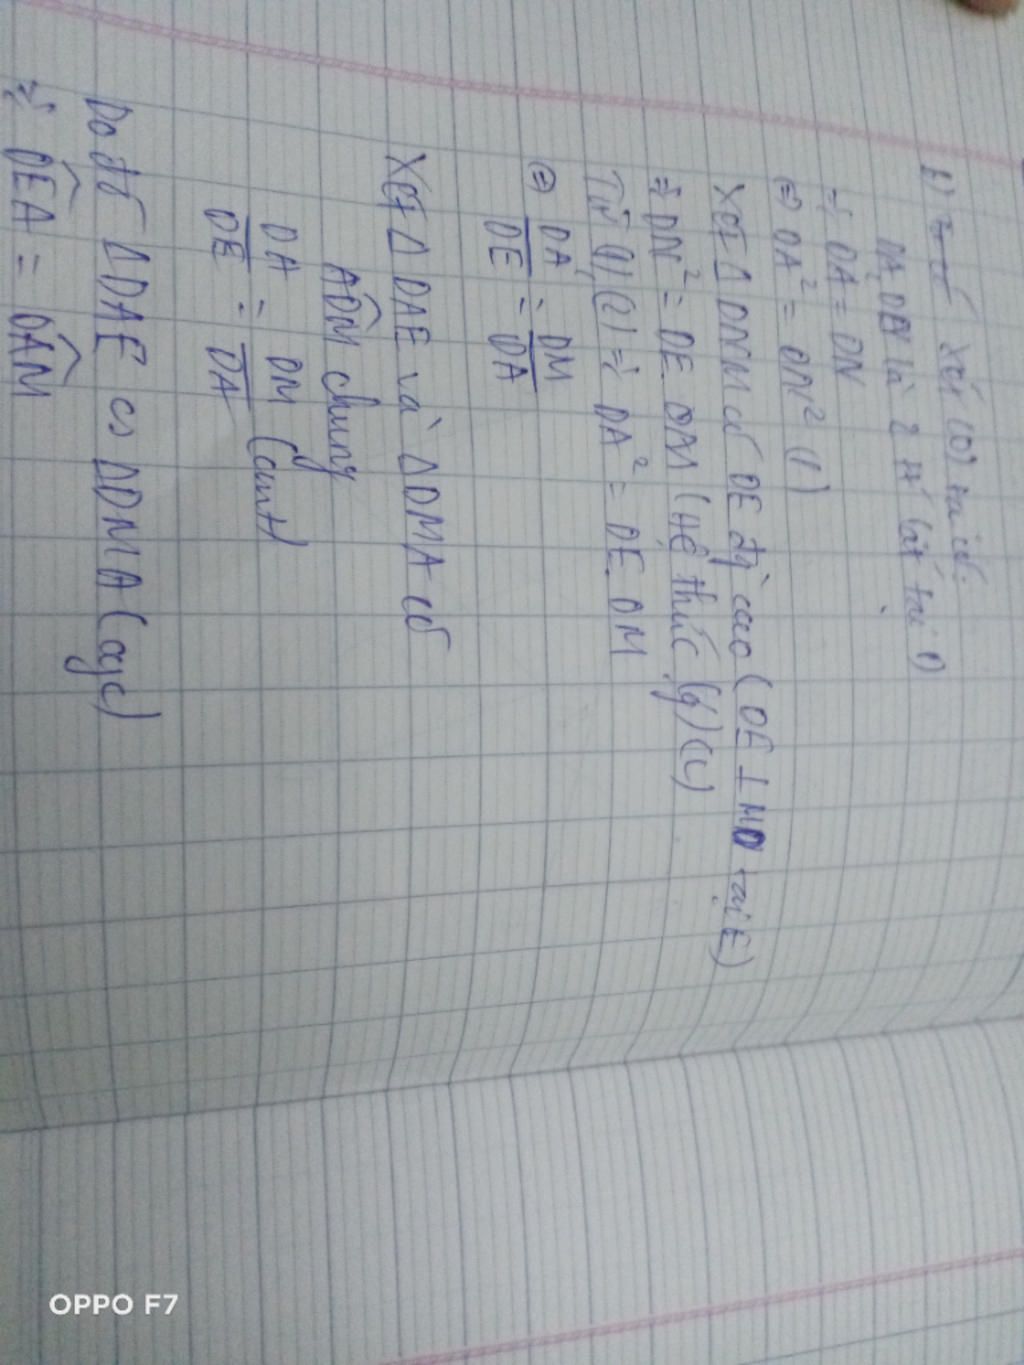 b) Xét (O) ta có:
DA, DN là 2 t² cắt tại D
=> DA = DN
=> DA² = DN² (1)
Xét Δ DNM có DE đg̀ cao (DE ⊥ MD tại E)
=> DN² = DE. DM (Hệ thức lg) (2)
Từ (1) (2) => DA² = DE. DM
<=> DA/DE = DM/DA
Xét Δ DAE và Δ DMA có
ADM chung
DA/DE = DM/DA (cmt)
Do đó ΔDAE ∽ ΔDMA (cgc)
=> DEA = DAM
OPPO F7